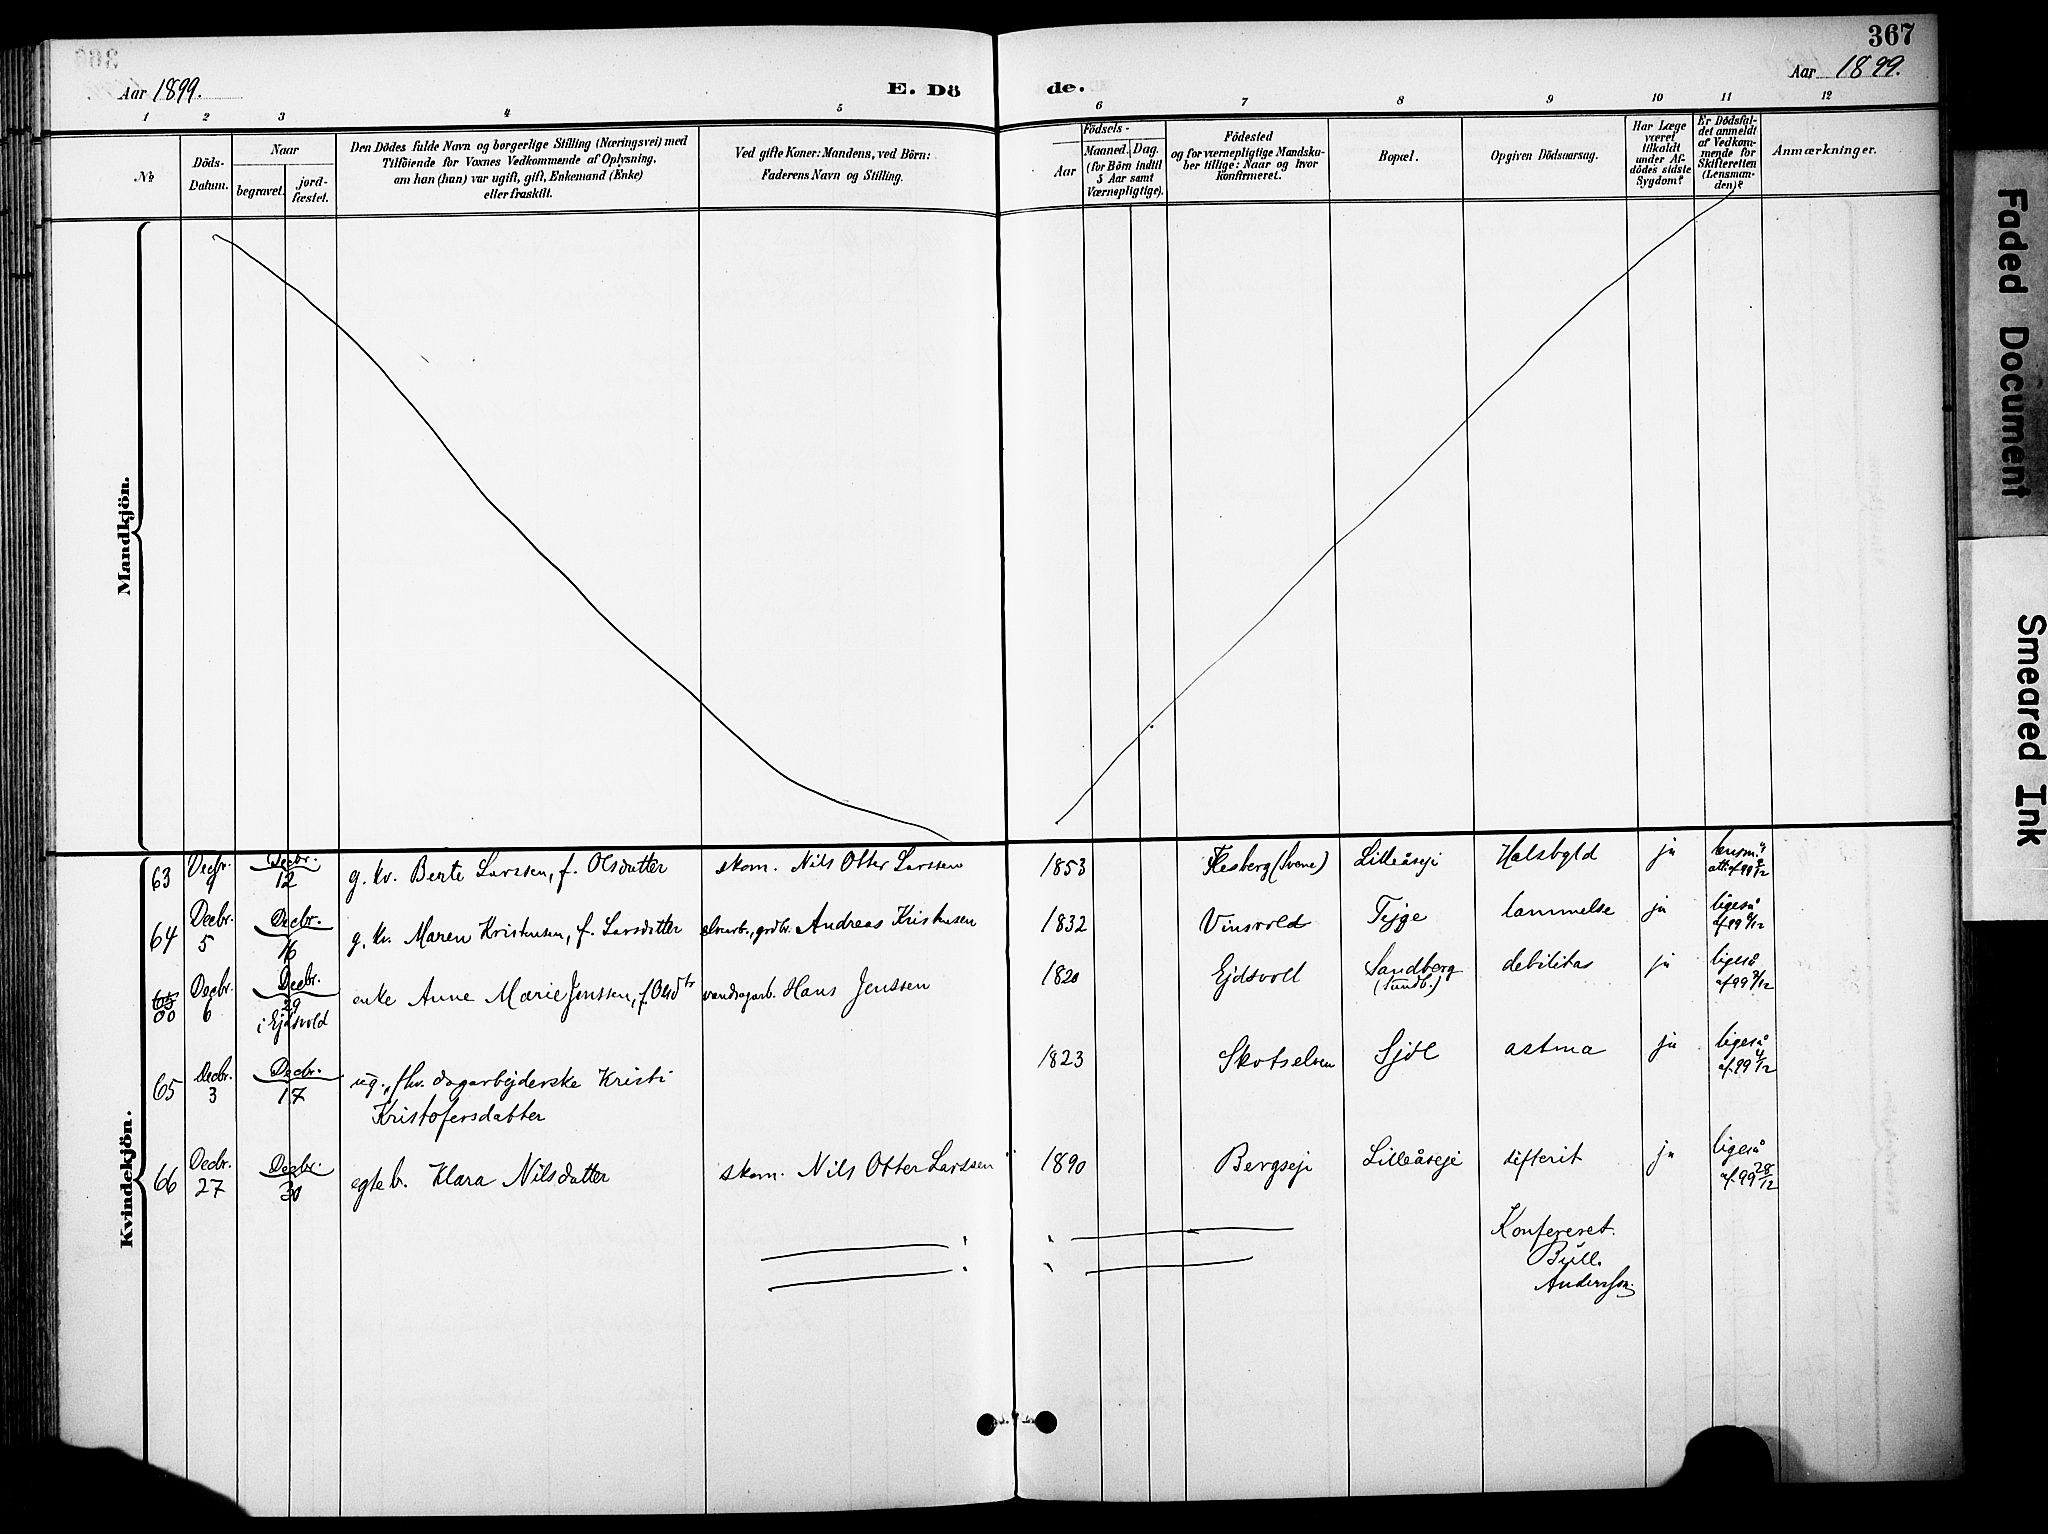 367
Aar 1899.
E. Dö
de.
Aar 1899.
1 2 3 4 5 6 7 8 9 10 11 12
No
Döds-
Datum.
Naar
begravet.
jord-
fæstet.
Den Dödes fulde Navn og borgerlige Stilling (Næringsvei) med
Tilföiende for Voxnes Vedkommende af Oplysning,
om han (hun) var ugift, gift, Enkemand (Enke)
eller fraskilt.
Ved gifte Koner: Mandens, ved Börn:
Faderens Navn og Stilling.
Födsels-
Aar
Maaned. Dag.
(for Börn indtil
5 Aar samt
Værnepligtige).
Födested
og for værnepligtige Mandska-
ber tillige: Naar og hvor
konfirmeret.
Bopæl.
Opgiven Dödsaarsag.
Har Læge
været
tilkaldt
under Af-
dödes sidste
Sygdom?
Er Dödsfal-
det anmeldt
af Vedkom-
mende for
Skifteretten
(Lensman-
den)?
Anmærkninger.
Mandkjön.
Kvindekjön.
63 Decbr. 9 Decbr. 12 g. kv. Berte Larssen, f. Olsdatter skom. Nils Otter Larssen 1853 Flesberg (Svene) Lilleåseje Halsbyld ja lensm.s att. af 99 9/12
64 Decbr. 5 Decbr. 16 g. kv. Maren Kristensen, f. Larsdatter Andreas Kristensen 1832 Vinsvold Tejge lammelse ja ligeså af 99 6/12
65 00 Decbr. 6 Decbr. 29 i Ejdsvold enke Anne Marie Jenssen, f. Olsdtr vandragarb. Hans Jenssen 1820 Ejdsvold Sandberg (Sundb.) debilitas ja ligeså af 99 7/12
65 Decbr. 3 Decbr. 17 ug., fhv. dagarbejderske Kristi
Kristofersdatter 1823 Skotselven Sjöl astma ja ligeså af 99 4/12
66 Decbr. 27 Decbr. 30 egte b. Klara Nilsdatter skom. Nils Otter Larssen 1890 Bergseje Lilleåseje difterit ja ligeså af 99 28/12
Konfereret.
Bull.
Anderssen.
Faded Document
Smeared Ink